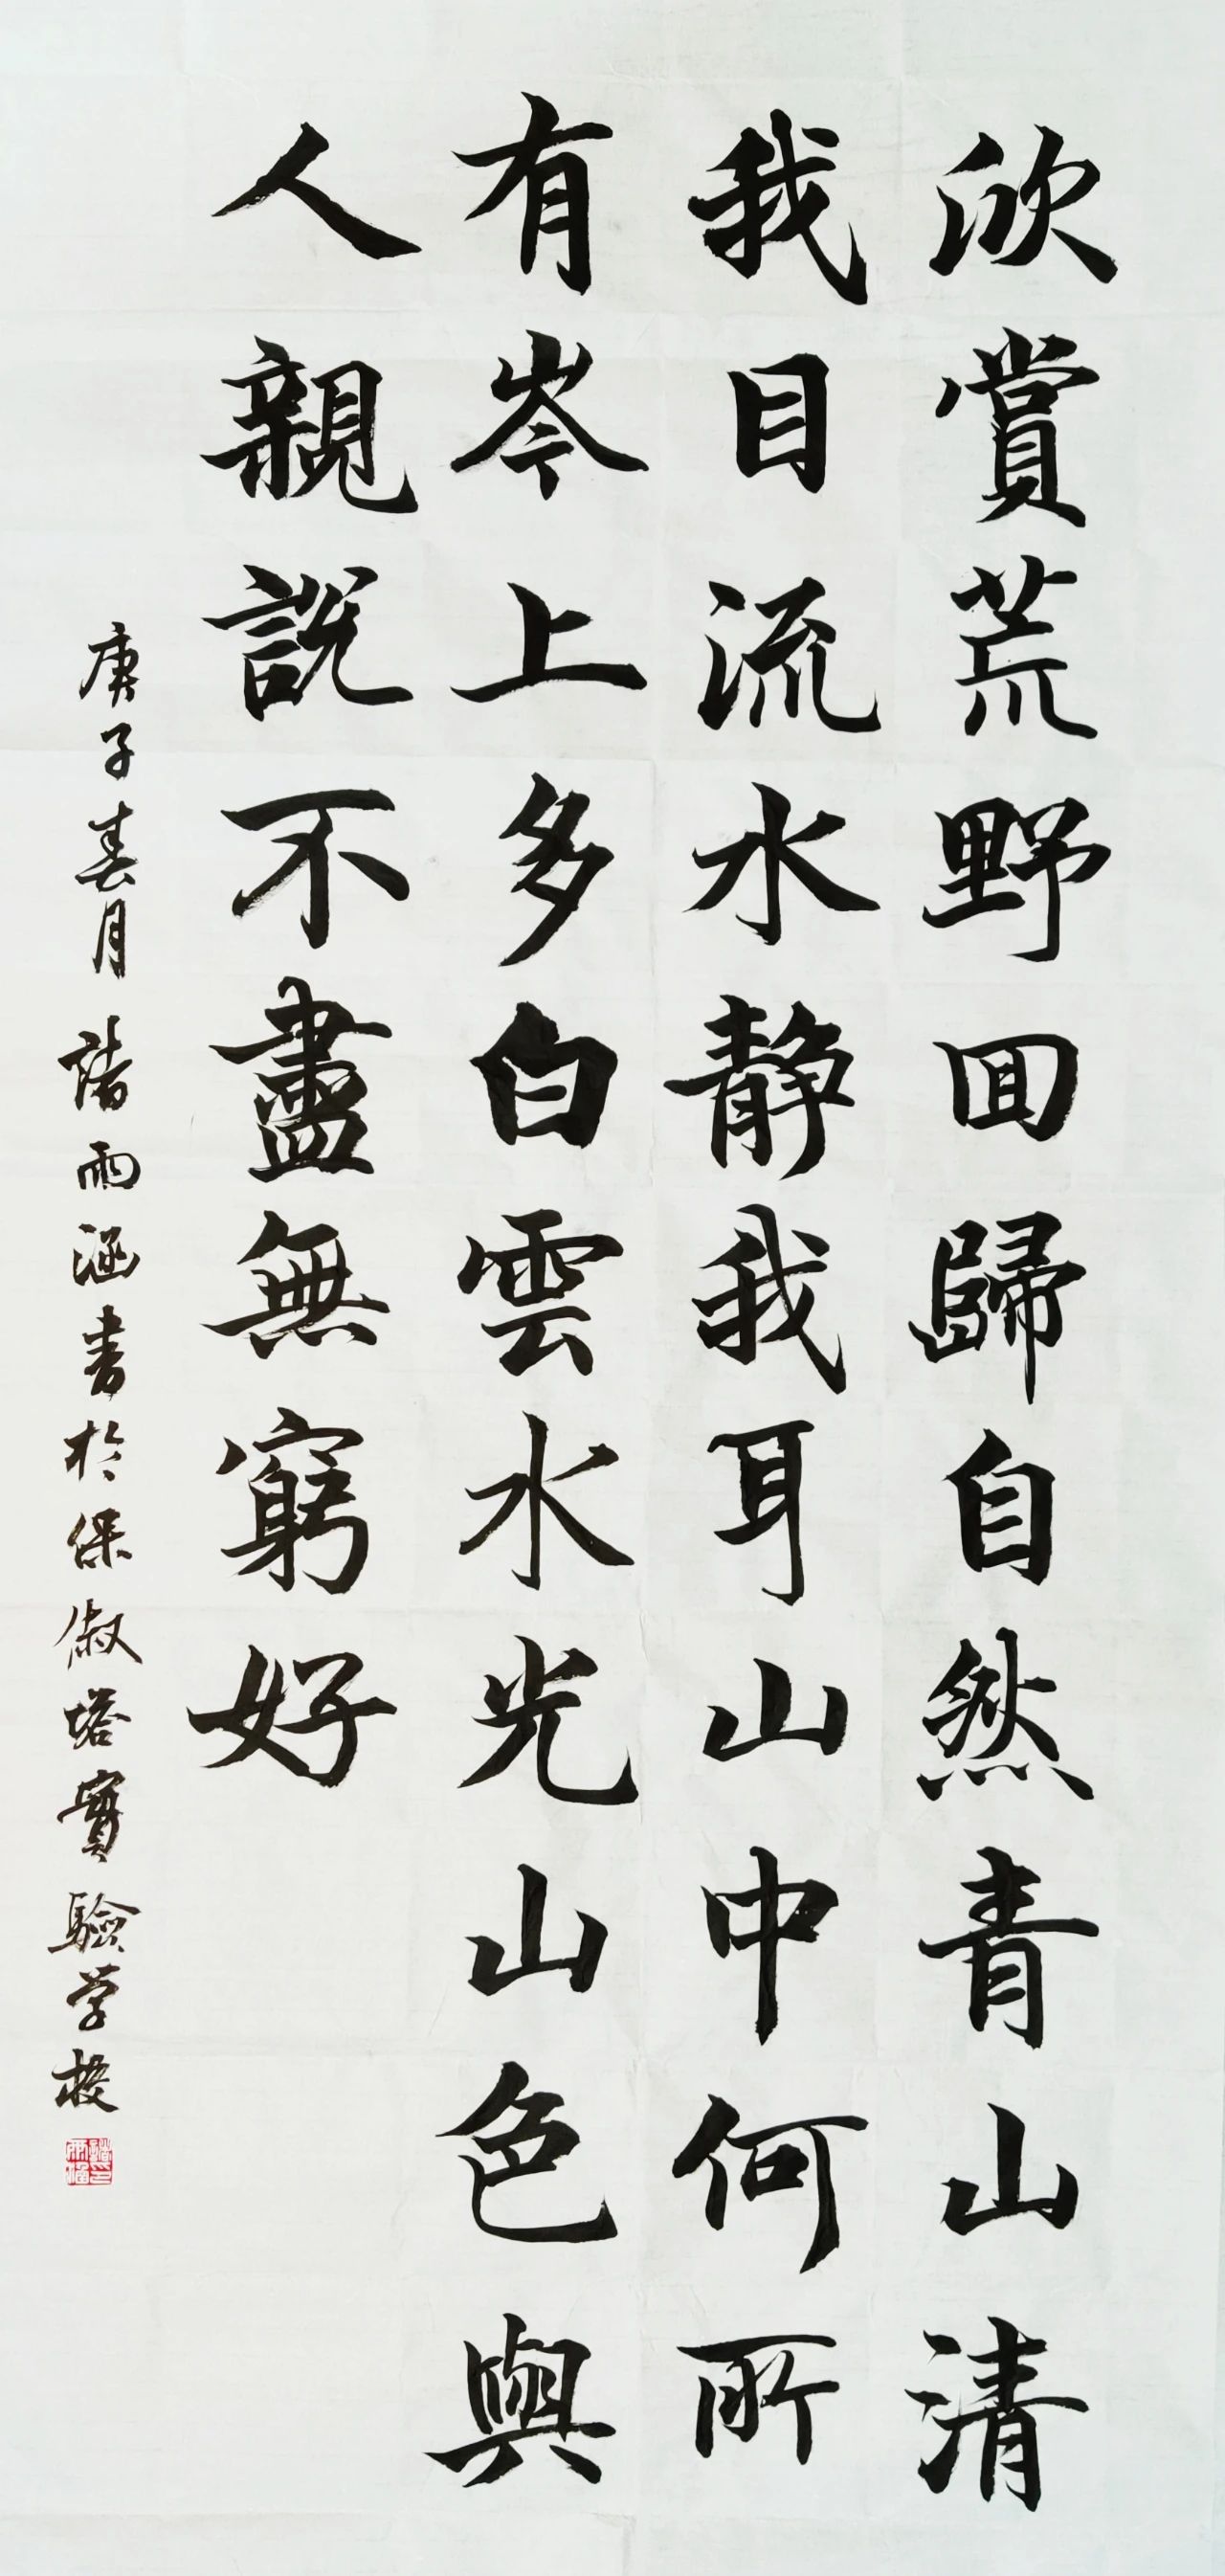 欣賞荒野回歸自然青山清
我目流水静我耳山中何所
有岑上多白雲水光山色與
人親説不盡無窮好
庚子春月諸雨涵書於保俶塔實驗学校